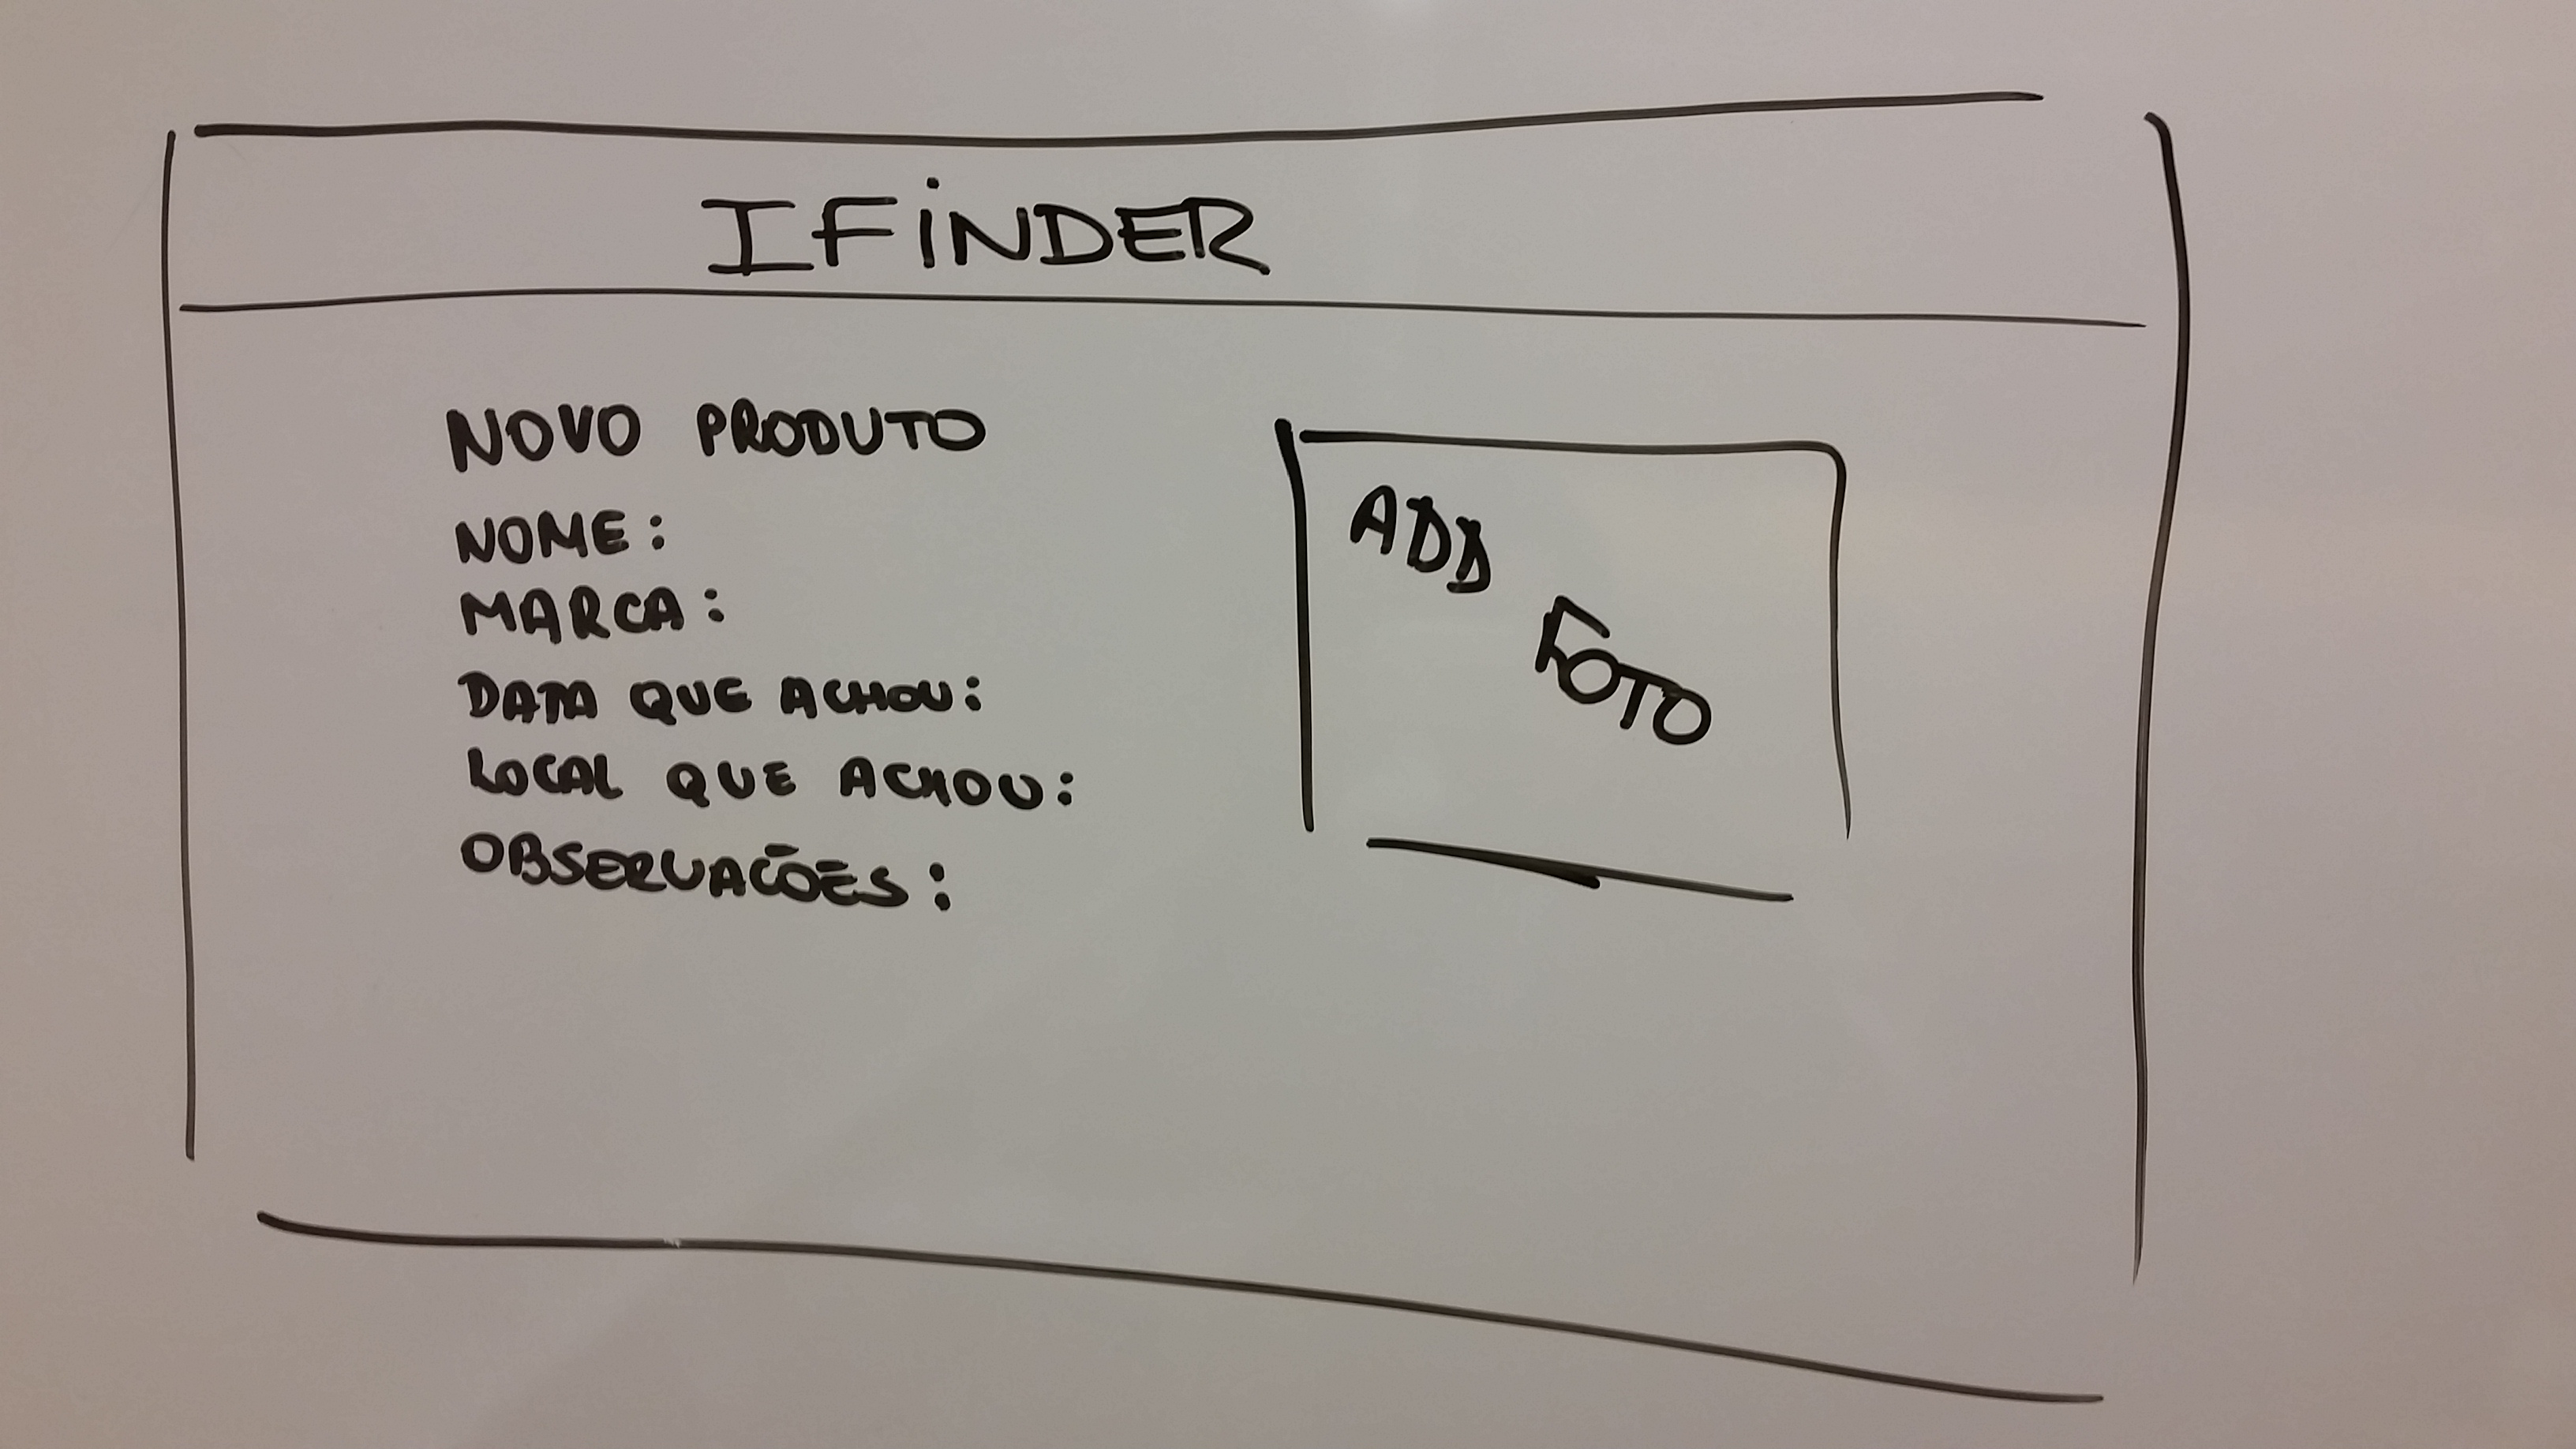 IFiNDER
NOVO PRODUTO
NOME:
MARCA:
DATA QUE ACHOU:
LOCAL QUE ACHOU:
OBSERVAÇÕES:
ADD
FOTO